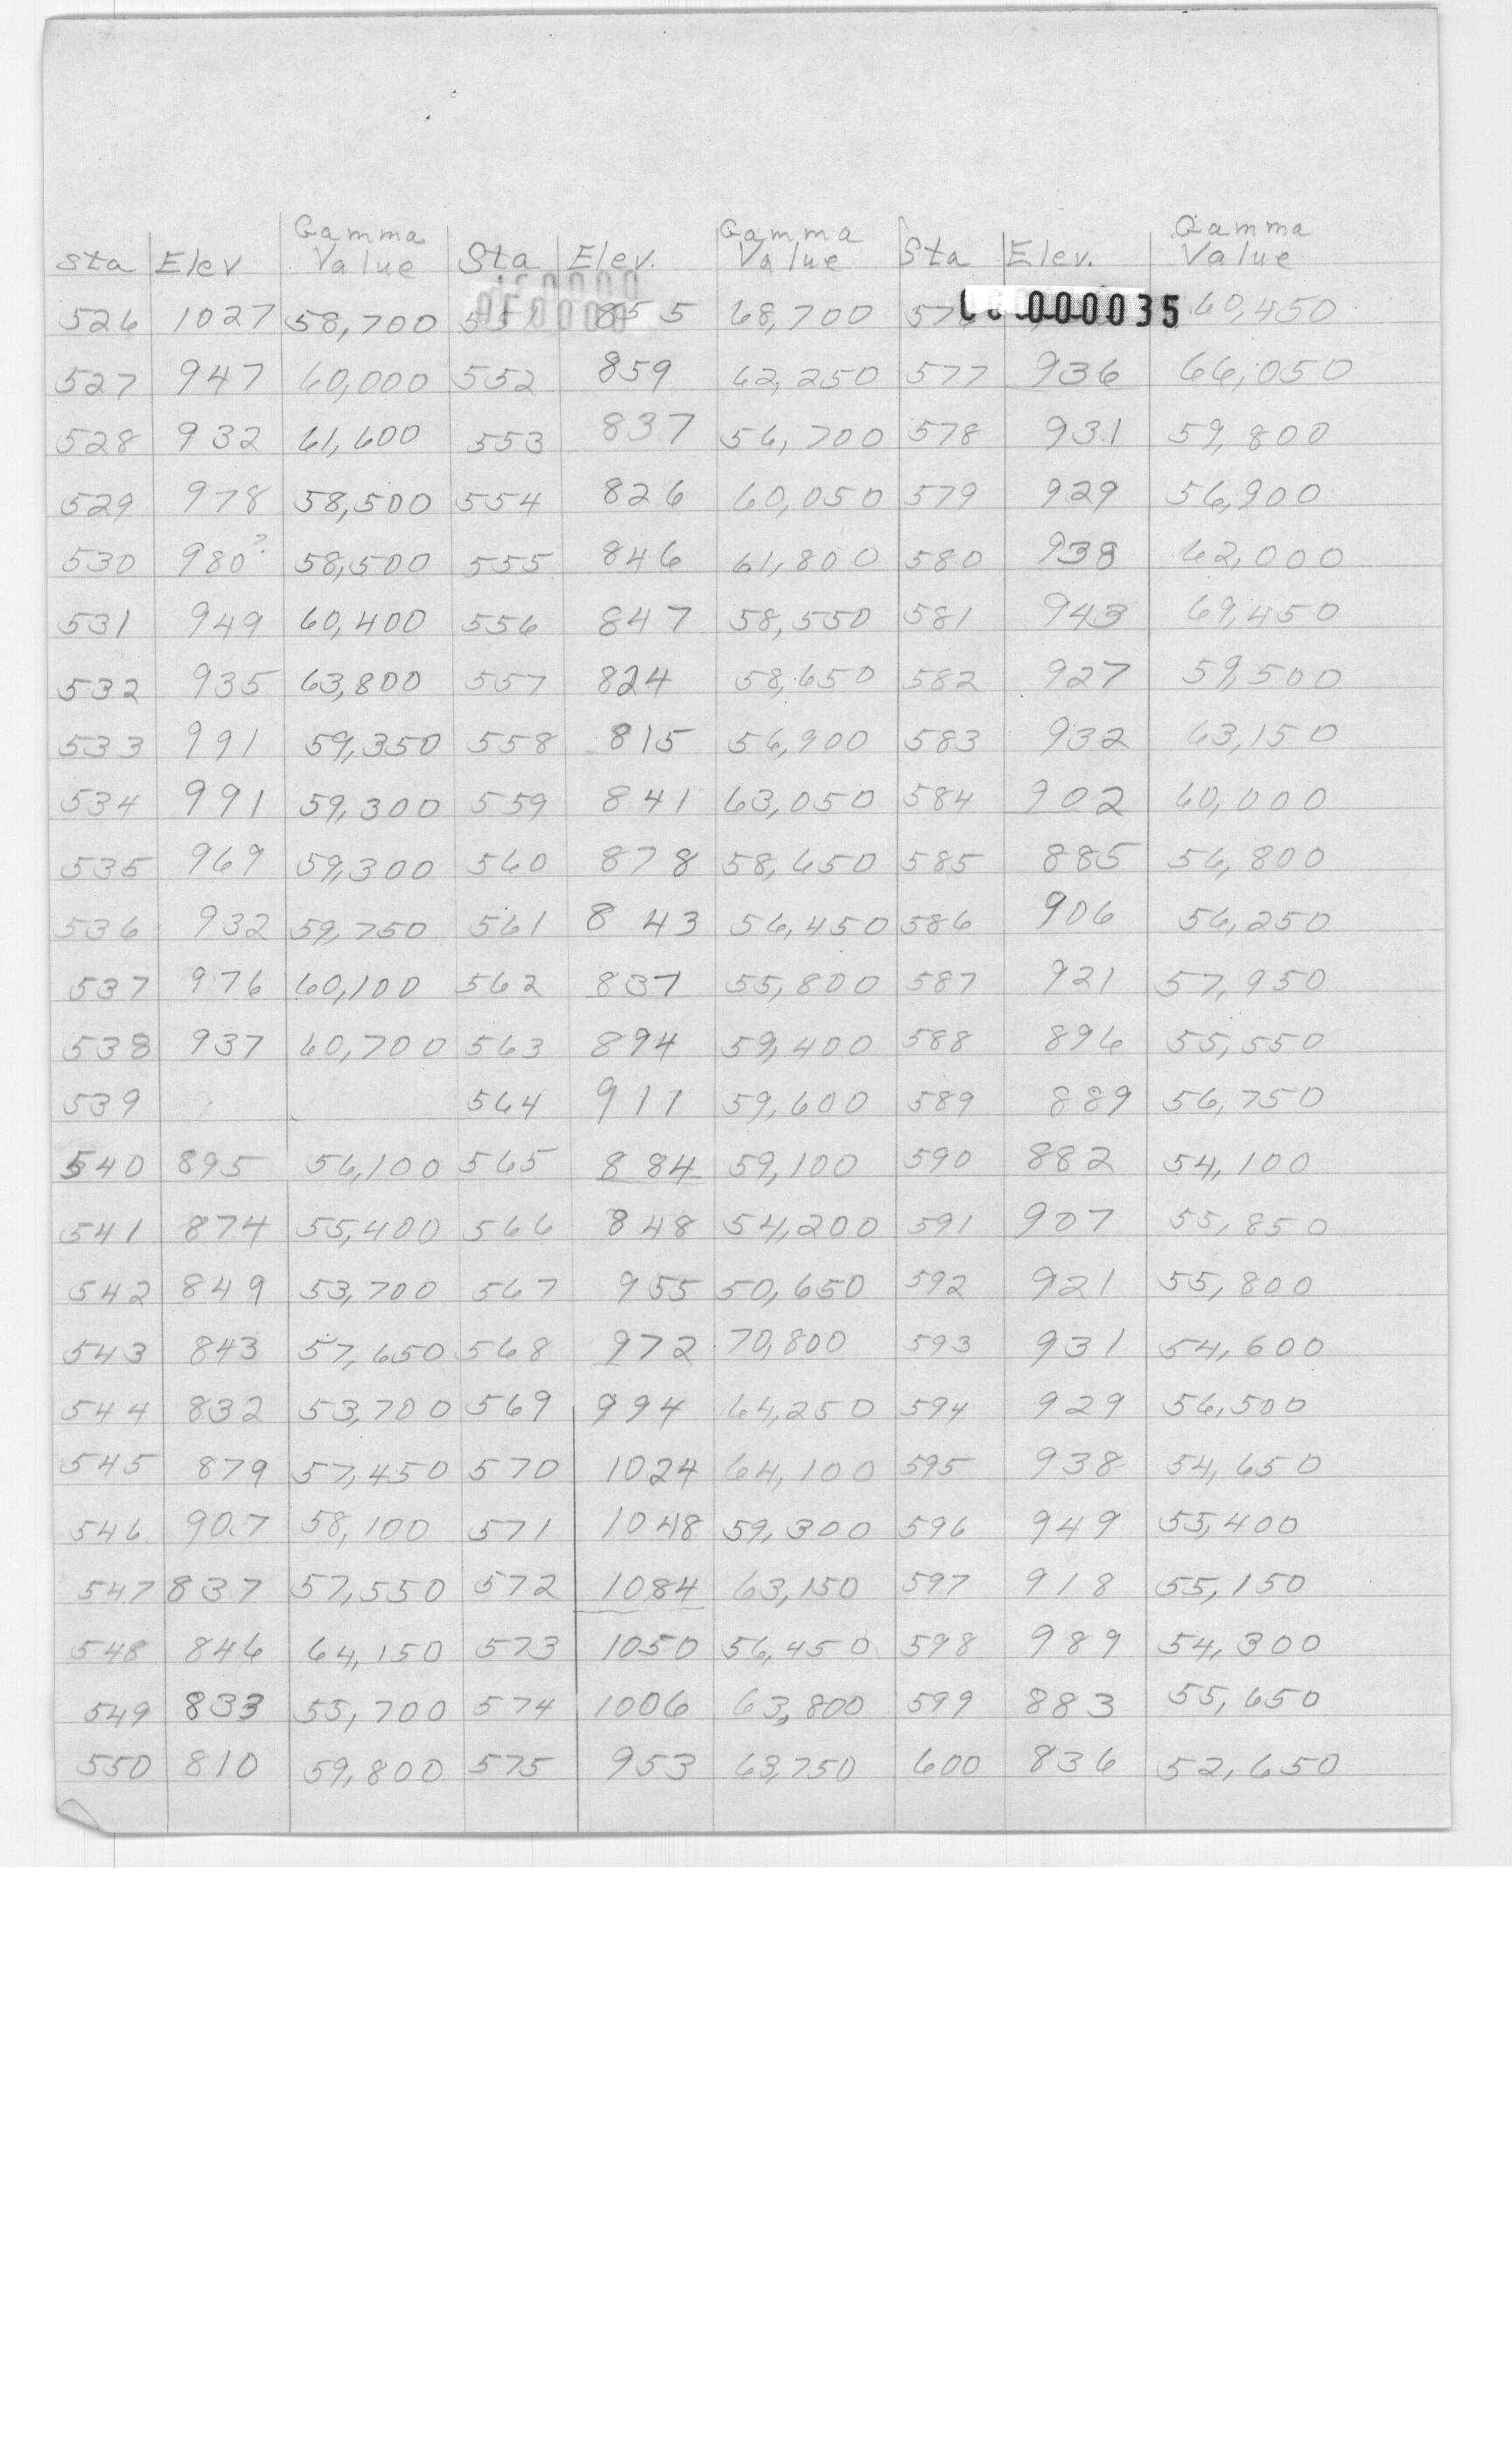 Sta Elev Gamma Value Sta Elev. Gamma Value Sta Elev. Gamma Value
526 1027 58,700 551 855 68,700 000035 60,450
527 947 60,000 552 859 62,250 577 936 66,050
528 932 61,600 553 837 56,700 578 931 59,800
529 978 58,500 554 826 60,050 579 929 56,900
530 980? 58,500 555 846 61,800 580 938 62,000
531 949 60,400 556 847 58,550 581 943 69,450
532 935 63,800 557 824 58,650 582 927 59,500
533 991 59,350 558 815 56,900 583 932 63,150
534 991 59,300 559 841 63,050 584 902 60,000
535 969 59,300 560 878 58,650 585 885 56,800
536 932 59,750 561 843 56,450 586 906 56,250
537 976 60,100 562 837 55,800 587 921 57,950
538 937 60,700 563 894 59,400 588 896 55,550
539 564 911 59,600 589 889 56,750
540 895 56,100 565 884 59,100 590 882 54,100
541 874 55,400 566 848 54,200 591 907 55,850
542 849 53,700 567 955 50,650 592 921 55,800
543 843 57,650 568 972 70,800 593 931 54,600
544 832 53,700 569 994 64,250 594 929 56,500
545 879 57,450 570 1024 64,100 595 938 54,650
546 907 58,100 571 1048 59,300 596 949 55,400
547 837 57,550 572 1084 63,150 597 918 55,150
548 846 64,150 573 1050 56,450 598 989 54,300
549 833 55,700 574 1006 63,800 599 883 55,650
550 810 59,800 575 953 63,750 600 836 52,650